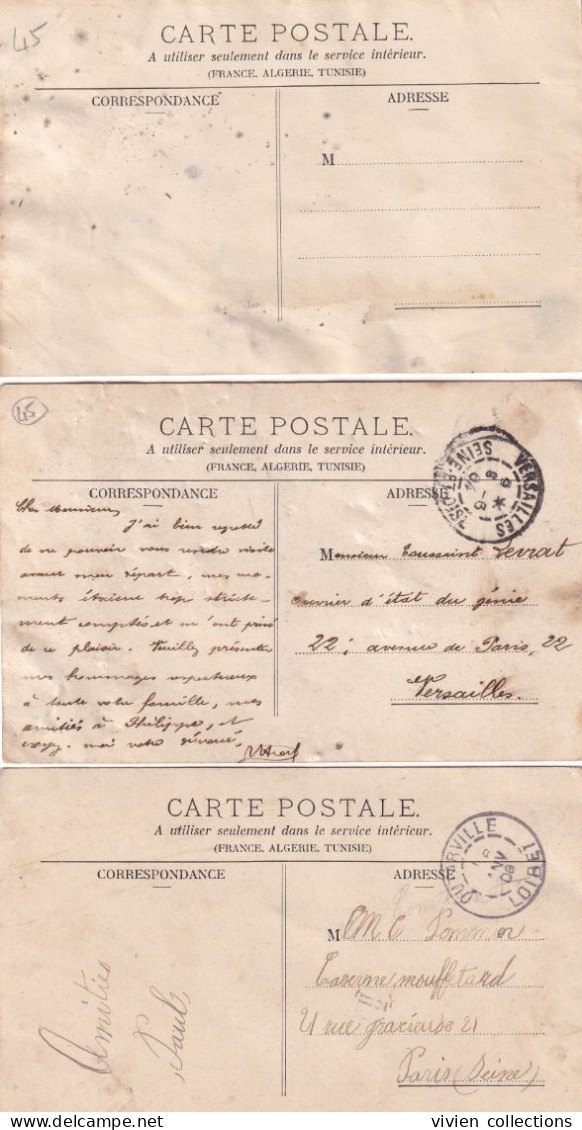 45
CARTE POSTALE.
A utiliser seulement dans le service intérieur.
(FRANCE, ALGERIE, TUNISIE)
CORRESPONDANCE
ADRESSE
M
45
CARTE POSTALE.
A utiliser seulement dans le service intérieur.
(FRANCE, ALGERIE, TUNISIE)
VERSAILLES
SEINE-ET-OISE
CORRESPONDANCE
ADRESSE
Cher Monsieur,
J'ai bien regretté
de ne pouvoir vous rendre visite
avant mon départ, mes mo-
ments étaient trop stricte-
ment comptés et m'ont privé
de ce plaisir. Veuillez présenter
nos hommages respectueux
à toute votre famille, mes
amitiés à Philippe, et
croyez-moi votre dévoué,
Monsieur Toussaint Levrat
ouvrier d'état du génie
22, avenue de Paris, 22
Versailles.
CARTE POSTALE.
A utiliser seulement dans le service intérieur.
(FRANCE, ALGERIE, TUNISIE)
OUTARVILLE
LOIRET
CORRESPONDANCE
ADRESSE
Amitiés
Paul
M
Taverne mouffetard
21 rue gracieuse 21
Paris (Seine)
vivien collections